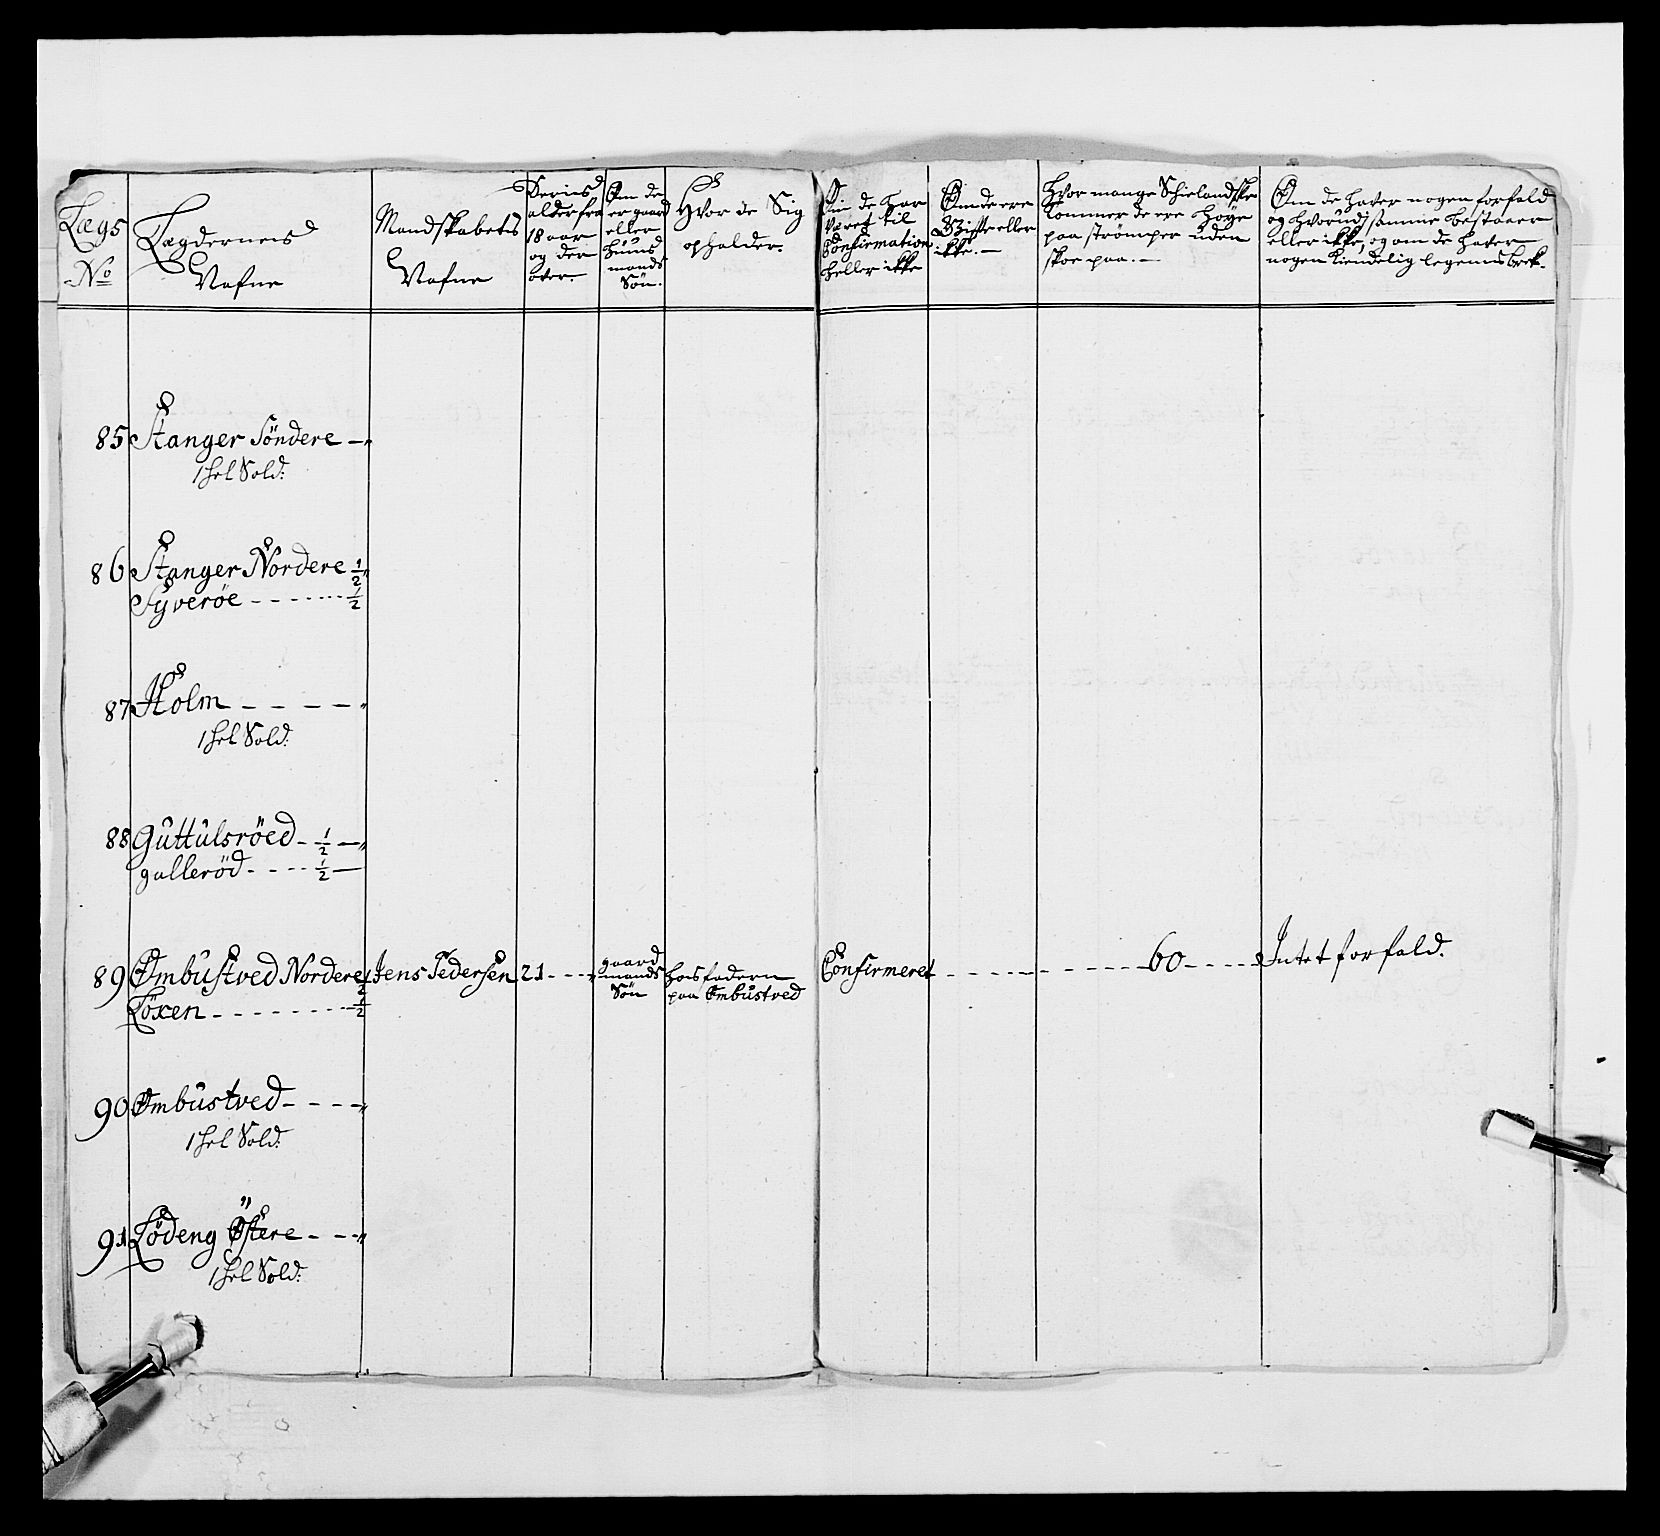 Lægs
No
Lægdernens
Nafne
Mandskabets
Nafne
Deries
alder fra
18 aar
og der
over.
Om de
er gaard
eller
huus
mands
Søn.
Hvor de Sig
opholder.
Om de har
været til
Confirmation
heller ikke
Om de ere
Gifte eller
ikke. —
Hvor mange Schielandske
Tommer de ere høye
paa strømper uden
skoe paa. —
Om de haver nogen forfald
og hvorudj samme bestaaer
eller ikke, og om de haver
nogen kiendelig legems brek.
85 Stanger Söndere —
1 hel Sold:
86 Stanger Nordere 1/2
Syveröe - - - - - - 1/2
87 Holm — — — —
1 hel Sold:
88 Guttulsröed - 1/2 —
gulleröd - - - - 1/2 —
89 Ombustved Nordere 1/2 Jens Pedersen 21 - - - gaard
mands
Søn
hos faderen
paa Ombustved
Confirmeret - - - - - - - - 60 - - - - Intet forfald.
Löxen - - - - - - - - 1/2
90 Ombustved - - - -
1 hel Sold:
91 Lödeng Östere - - -
1 hel Sold: